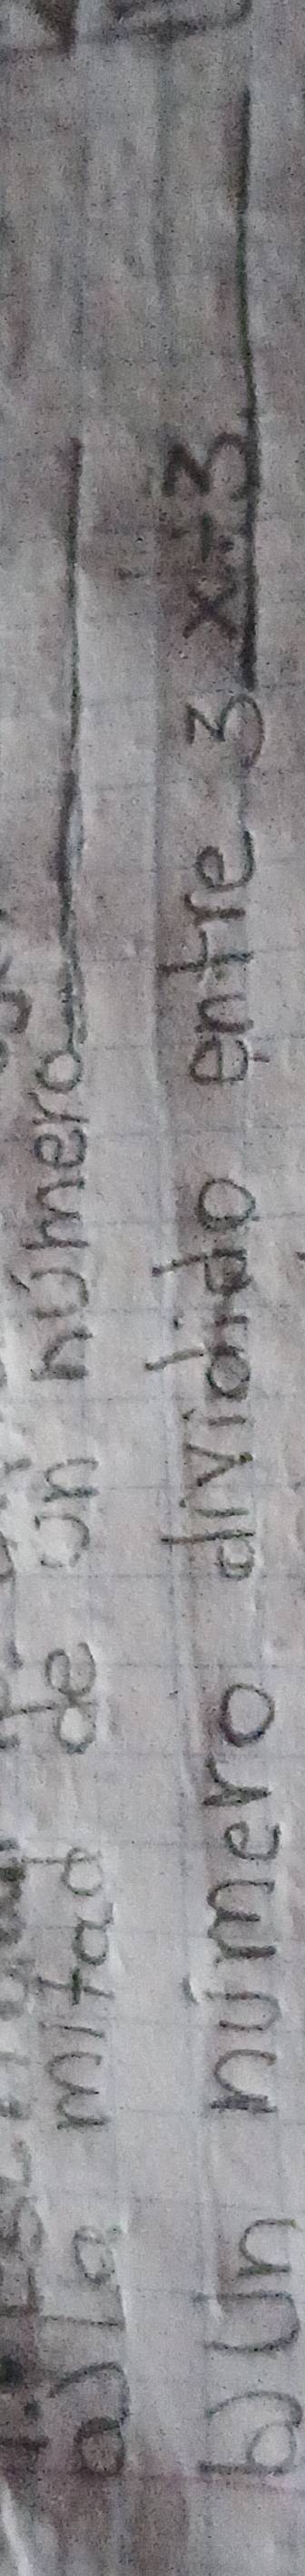 a) La mitad de un número
b) Un número dividido entre 3 x÷3